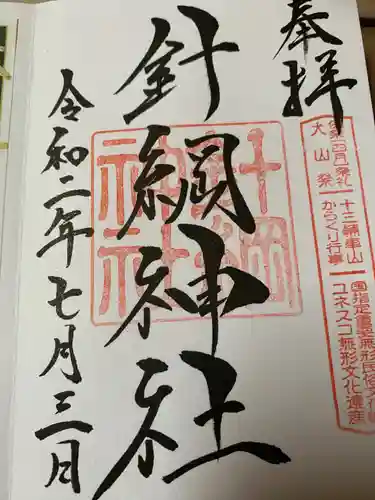 奉拝
針綱神社
令和二年七月三日
針綱
神社
大山祭
十三輌車山
からくり行事
国指定重要無形民俗文化財
ユネスコ無形文化遺産